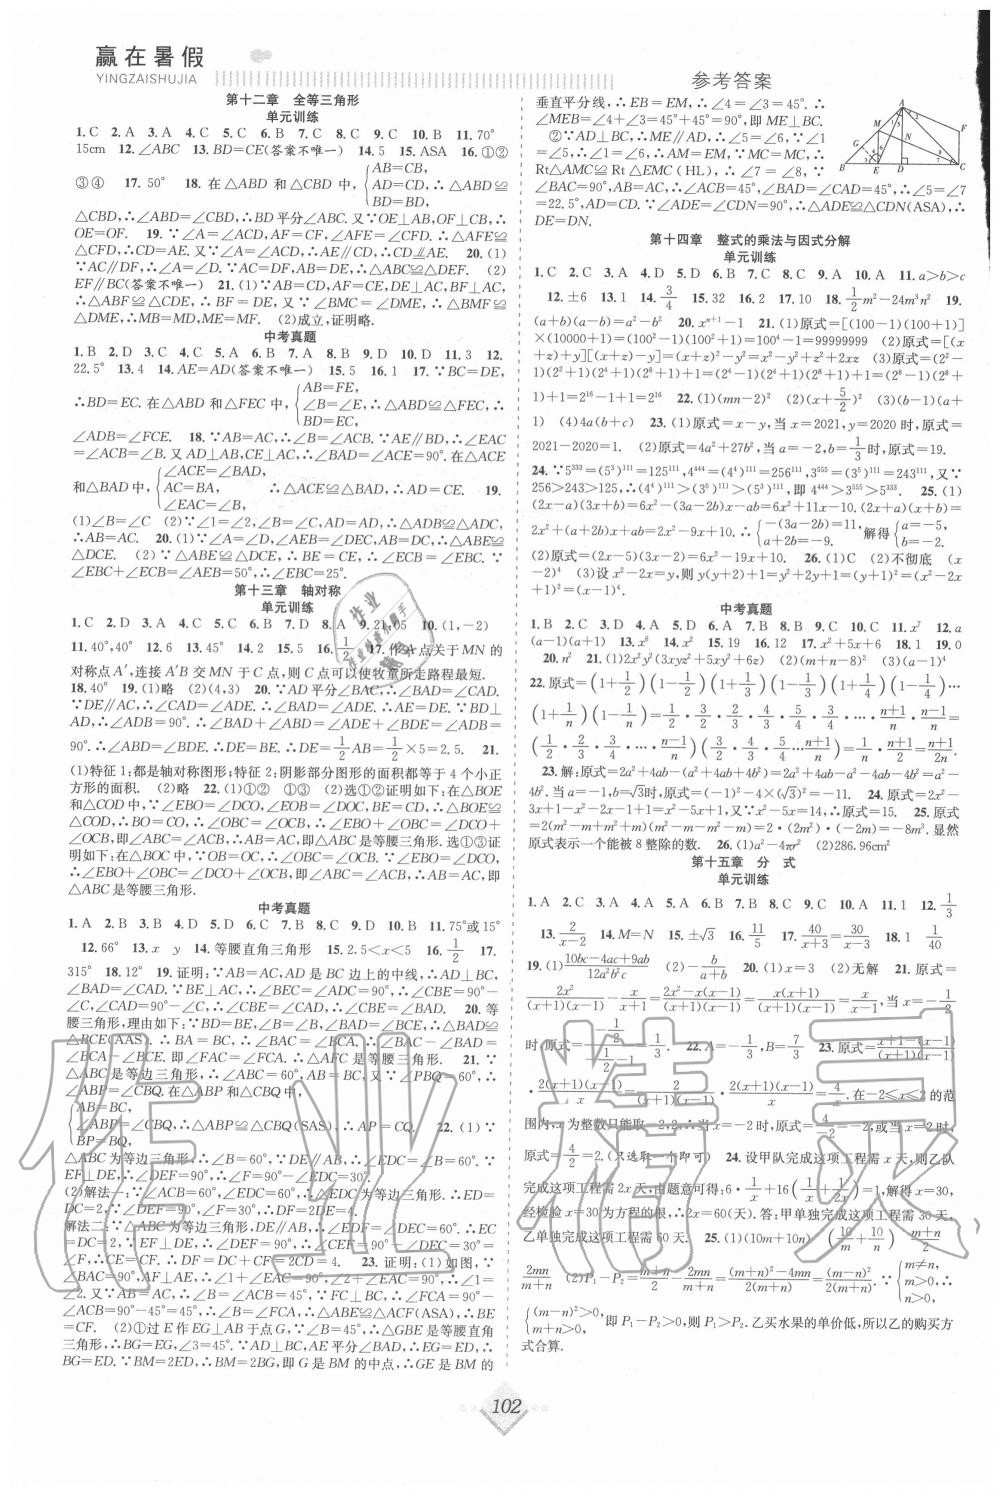 赢在暑假
YINGZAISHUJIA
参考答案
第十二章 全等三角形
单元训练
1. C 2. A 3. A 4. C 5. C 6. B 7. C 8. C 9. C 10. B 11. 70°
15cm 12. ∠ABC 13. BD=CE(答案不唯一) 14. 5 15. ASA 16. ①②
③④ 17. 50° 18. 在△ABD 和△CBD 中,{AB=CB, AD=CD, BD=BD, ∴△ABD≌
△CBD,∴∠ABD=∠CBD,∴BD平分∠ABC.又∵OE⊥AB,OF⊥CB,∴
OE=OF. 19. ∵∠A=∠ACD,AF=CF,∠AFE=∠CFD,∴△AFE≌
△CFD,∴CD=AE.又∵∠A=∠ACD,∴CD∥AE. 20. (1)
∵AC∥DF,∴∠A=∠D.又∵AC=DF,AB=DE,∴△ABC≌△DEF. (2)
EF∥BC(答案不唯一) 21. (1)∵AB=CD,AF=CE,DE⊥AC,BF⊥AC,
∴△ABF≌△CDE,∴BF=DE,又∵∠BMC=∠DME,∴△BMF≌
△DME,∴MB=MD,ME=MF. (2)成立,证明略.
中考真题
1. B 2. D 3. A 4. D 5. D 6. A 7. B 8. C 9. D 10. D 11. 3 12.
22.5° 13. 4 14. AE=AD(答案不唯一) 15. 5 16. 1 17. ∵BC=DE,
∴BD=EC.在△ABD和△FEC中,{AB=FE, ∠B=∠E, BD=EC, ∴△ABD≌△FEC,∴
∠ADB=∠FCE. 18. ∵AB=AC,∴∠B=∠ACB.∵AE∥BD,∴∠EAC
=∠ACB=∠B.又AD⊥AB,CE⊥AC,∴∠BAD=∠ACE=90°.在△ACE
和△BAD中,{∠ACE=∠BAD, AC=BA, ∠EAC=∠B, ∴△ACE≌△BAD,∴AD=CE. 19.
(1)∠B=∠C (2)∵∠1=∠2,∠B=∠C,AD=AD,∴△ADB≌△ADC,
∴AB=AC. 20. (1)∵∠A=∠D,∠AEB=∠DEC,AB=DC,∴△ABE≌
△DCE. (2)∵△ABE≌△DCE,∴BE=CE,∴∠ECB=∠EBC.∵
∠EBC+∠ECB=∠AEB=50°,∴∠EBC=25°.
第十三章 轴对称
单元训练
1. C 2. B 3. C 4. D 5. B 6. D 7. D 8. A 9. 21:05 10. (1,-2)
11. 40°,40° 12. 6 13. 45° 14. 2 15. 5 16. 1/2 17. 作A点关于MN的
对称点A′,连接A′B交MN于C点,则C点可以使牧童所走路程最短.
18. 40° 19. (1)略 (2)(4,3) 20. ∵AD平分∠BAC,∴∠BAD=∠CAD.
∵DE∥AC,∴∠CAD=∠ADE,∴∠BAD=∠ADE.∴AE=DE.∵BD⊥
AD,∴∠ADB=90°.∴∠BAD+∠ABD=∠ADE+∠BDE=∠ADB=
90°.∴∠ABD=∠BDE.∴DE=BE.∴DE=1/2AB=1/2×5=2.5. 21.
(1)特征1:都是轴对称图形;特征2:阴影部分图形的面积都等于4个小正
方形的面积. (2)略 22. (1)①② ①③ (2)选①②证明如下:在△BOE
和△COD中,∵∠EBO=∠DCO,∠EOB=∠DOC,BE=CD,∴△BOE≌
△COD,∴BO=CO,∴∠OBC=∠OCB,∴∠EBO+∠OBC=∠DCO+
∠OCB,即∠ABC=∠ACB,∴AB=AC,即△ABC是等腰三角形.选①③证
明如下:在△BOC中,∵OB=OC,∴∠OBC=∠OCB,∵∠EBO=∠DCO,
又∵∠EBO+∠OBC=∠DCO+∠OCB,即∠ABC=∠ACB,∴AB=AC,即
△ABC是等腰三角形.
中考真题
1. A 2. B 3. B 4. D 5. C 6. D 7. B 8. C 9. D 10. B 11. 75°或15°
12. 66° 13. x y 14. 等腰直角三角形 15. 2.5<x<5 16. 1/2 17.
315° 18. 12° 19. 证明:∵AB=AC,AD是BC边上的中线,∴AD⊥BC,
∠BAD=∠CAD.∵BE⊥AC,∴∠BEC=∠ADC=90°,∴∠CBE=90°-
∠C,∠CAD=90°-∠C,∴∠CBE=∠CAD,∴∠CBE=∠BAD. 20. 等
腰三角形,理由如下:∵BD=BE,∠BDC=∠BEA,∠B=∠B,∴△BAE≌
△BCD(AAS).∴BA=BC,∴∠BAC=∠BCA.∴∠BAC-∠BAD=
∠BCA-∠BCE,即∠FAC=∠FCA.∴△AFC是等腰三角形. 21. ∵
△ABC为等边三角形,∴∠ABC=60°,AB=BC,又∵∠PBQ=60°,
∴∠ABP=∠CBQ.在△ABP和△CBQ中,
{AB=BC, ∠ABP=∠CBQ, BP=BQ, ∴△ABP≌△CBQ(SAS).∴AP=CQ. 22. (1)∵
△ABC为等边三角形,∴∠B=60°.∵DE∥AB,∴∠EDF=∠B=60°.∵
EF⊥DE,∴∠DEF=90°,∴∠F=30°.
(2)解法一:∵∠ACB=60°,∠EDC=60°,∴△EDC为等边三角形.∴ED=
DC=2,∵∠DEF=90°,∠F=30°,∴DF=2DE=4.
解法二:∵△ABC为等边三角形,DE∥AB,∴△CDE为等边三角形.∴EC
=DC=2.∵EF⊥DE,∴∠CEF=∠DEF-∠DEC=30°.∴∠CEF=
∠F.∴EC=CF=2.∴DF=DC+CF=2CD=4. 23. 证明:(1)如图,∵
∠BAC=90°,AF⊥AE,∴∠1+∠EAC=90°,∠2+∠EAC=90°,∴∠1=
∠2.又∵AB=AC,∴∠B=∠ACB=45°,∵FC⊥BC,∴∠FCA=90°-
∠ACB=90°-45°=45°,∴∠B=∠FCA,∴△ABE≌△ACF(ASA),∴BE
=CF. (2)①过E作EG⊥AB于点G,∵∠B=45°,∴△GBE是等腰直角
三角形,∴BG=EG,∠3=45°.∵AD⊥BC,AE平分∠BAD,∴EG=ED,∴
BG=ED.∵BM=2ED,∴BM=2BG,即G是BM的中点,∴GE是BM的
垂直平分线,∴EB=EM,∴∠4=∠3=45°.∴
∠MEB=∠4+∠3=45°+45°=90°,即ME⊥BC.
②∵AD⊥BC,∴ME∥AD,∴∠5=∠6.∵∠1
=∠5,∴∠1=∠6,∴AM=EM,∵MC=MC,∴
Rt△AMC≌Rt△EMC(HL),∴∠7=∠8,∵
∠BAC=90°,AB=AC,∴∠ACB=45°,∠BAD=∠CAD=45°,∴∠5=∠7=
22.5°,AD=CD.∵∠ADE=∠CDN=90°,∴△ADE≌△CDN(ASA),∴
DE=DN.
第十四章 整式的乘法与因式分解
单元训练
1. C 2. C 3. A 4. D 5. D 6. B 7. C 8. C 9. A 10. A 11. a>b>c
12. ±6 13. 1 14. 3/4 15. 32 16. 2 17. 10 18. 1/2m²-24m³n² 19.
(a+b)(a-b)=a²-b² 20. xⁿ⁺¹-1 21. (1)原式=[(100-1)(100+1)]
(2)原式=[(x
+z)+y][(x+z)-y]=(x+z)²-y²=x²-y²+z²+2xz (3)原式=(2²-
1)(2²+1)(2⁴+1)(2⁸+1)+1=(2⁴-1)(2⁴+1)(2⁸+1)+1=(2⁸-1)(2⁸+
1)+1=2¹⁶-1+1=2¹⁶ 22. (1)(mn-2)² (2)(x+5/2)² (3)(b-1)(a+
1) (4)4a(b+c) 23. (1)原式=x-y,当x=2021,y=2020时,原式=
2021-2020=1. (2)原式=4a²+27b²,当a=-2,b=1/3时,原式=19.
24. ∵5³³³=(5³)¹¹¹=125¹¹¹,4⁴⁴⁴=(4⁴)¹¹¹=256¹¹¹,3⁵⁵⁵=(3⁵)¹¹¹=243¹¹¹,又∵
256>243>125,∴(4⁴)¹¹¹>(3⁵)¹¹¹>(5³)¹¹¹,即4⁴⁴⁴>3⁵⁵⁵>5³³³. 25. (1)
(2x-a)(3x+b)=6x²-(3a-2b)x-ab=6x²+11x-10.(2x+a)(x+b)=
2x²+(a+2b)x+ab=2x²-9x+10.∴{-(3a-2b)=11, a+2b=-9. 解得{a=-5, b=-2.
(2)原式=(2x-5)(3x-2)=6x²-19x+10. 26. (1)C (2)不彻底 (x
-2)⁴ (3)设x²-2x=y,原式=y(y+2)+1=y²+2y+1=(y+1)²=(x²-2x
+1)²=(x-1)⁴.
中考真题
1. B 2. C 3. B 4. D 5. B 6. A 7. B 8. D 9. C 10. C 11. x⁷ 12. a
(a-1)(a+1) 13. x⁶ 14. x² 15. 19 16. 12 17. x²+5x+6 18. 1 19. 0
20. n² 21. (1)2x²y²(3xy²+5xy+6y) (2)(m+n-8)² (3)(a-1)⁴
22. 原式=(1+1/2)(1-1/2)(1+1/3)(1-1/3)(1+1/4)(1-1/4)…
(1+1/n)(1-1/n)=3/2·1/2·4/3·2/3·5/4·3/4·…·(n+1)/n·(n-1)/n=
(1/2·2/3·3/4·…·(n-1)/n)(3/2·4/3·5/4·…·(n+1)/n)=1/n·(n+1)/2=(n+1)/2n.
23. 解:
24. 原式=2x²-
3x+1-x²-2x-1+1=x²-5x+1,又∵x²-5x=14,∴原式=15. 25. 原式
=2(m²-m+m²+m)(m²-m-m²-m)=2·(2m²)·(-2m)=-8m³.显然
原式表示一个能被8整除的数. 26. (1)a²-4πr² (2)286.96cm²
第十五章 分 式
单元训练
1. A 2. C 3. B 4. D 5. B 6. C 7. B 8. C 9. C 10. A 11. 1 12. 1/3
13. 2/(x-2) 14. M=N 15. ±√3 16. 11/5 17. 40/(x+3)=30/(x-3) 18. 1 1/40
19. (1)(10bc-4ac+9ab)/12a²b²c (2)-b/(a+b) 20. (1)x=3 (2)无解 21. 原式=
2x²/((x+1)(x-1))-x/(x+1)=(2x²-x(x-1))/((x+1)(x-1))=x(x+1)/((x+1)(x-1))=x/(x-1),当x=-1/2
22. A=-1/3,B=7/3
在-2≤x≤2的范
围内,x为整数只能取-2,2,∴当x=-2时,原式=4/-2=-2,或当x=2时,
原式=4/2=2.(只选取一个即可) 24. 设甲队完成这项工程需x天,则乙队
完成这项工程需2x天,由题意可得:6·1/x+16(1/x+1/2x)=1,解得x=30,
经检验x=30为方程的根,∴2x=60(天).答:甲单独完成这项工程需30天,
乙单独完成这项工程需60天. 25. (1)(10m+10n) (10/m+10/n) (m+n)/2
2mn/(m+n) (2)P₁-P₂=(m+n)/2-2mn/(m+n)=((m+n)²-4mn)/2(m+n)=(m-n)²/2(m+n).∵{m≠n, m>0, n>0,∴
{(m-n)²>0, m+n>0, 即P₁-P₂>0,则P₁>P₂.乙买水果的单价低,所以乙的购买方
式合算.
102
作业精灵